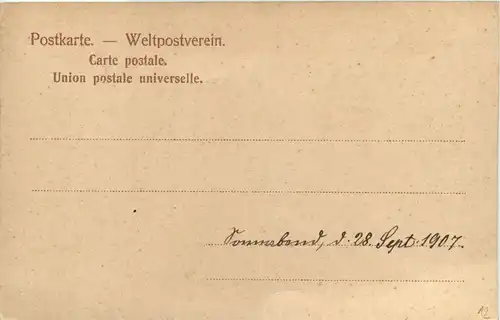 Postkarte. — Weltpostverein.
Carte postale.
Union postale universelle.
Sonnabend, d. 28. Sept. 1907.
A2